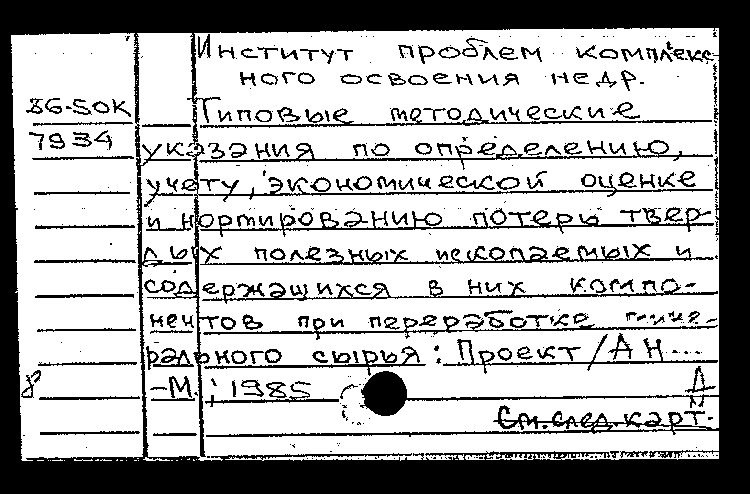 Институт проблем комплекс
ного освоения недр.
86-5ок Типовые методические
7934 указания по определению,
учету, экономической оценке
и нормированию потерь твер-
дых полезных ископаемых и
содержащихся в них компо-
нентов при переработке мине-
рального сырья: Проект/АН...
8 -М.; 1985 Д
См.след.карт.